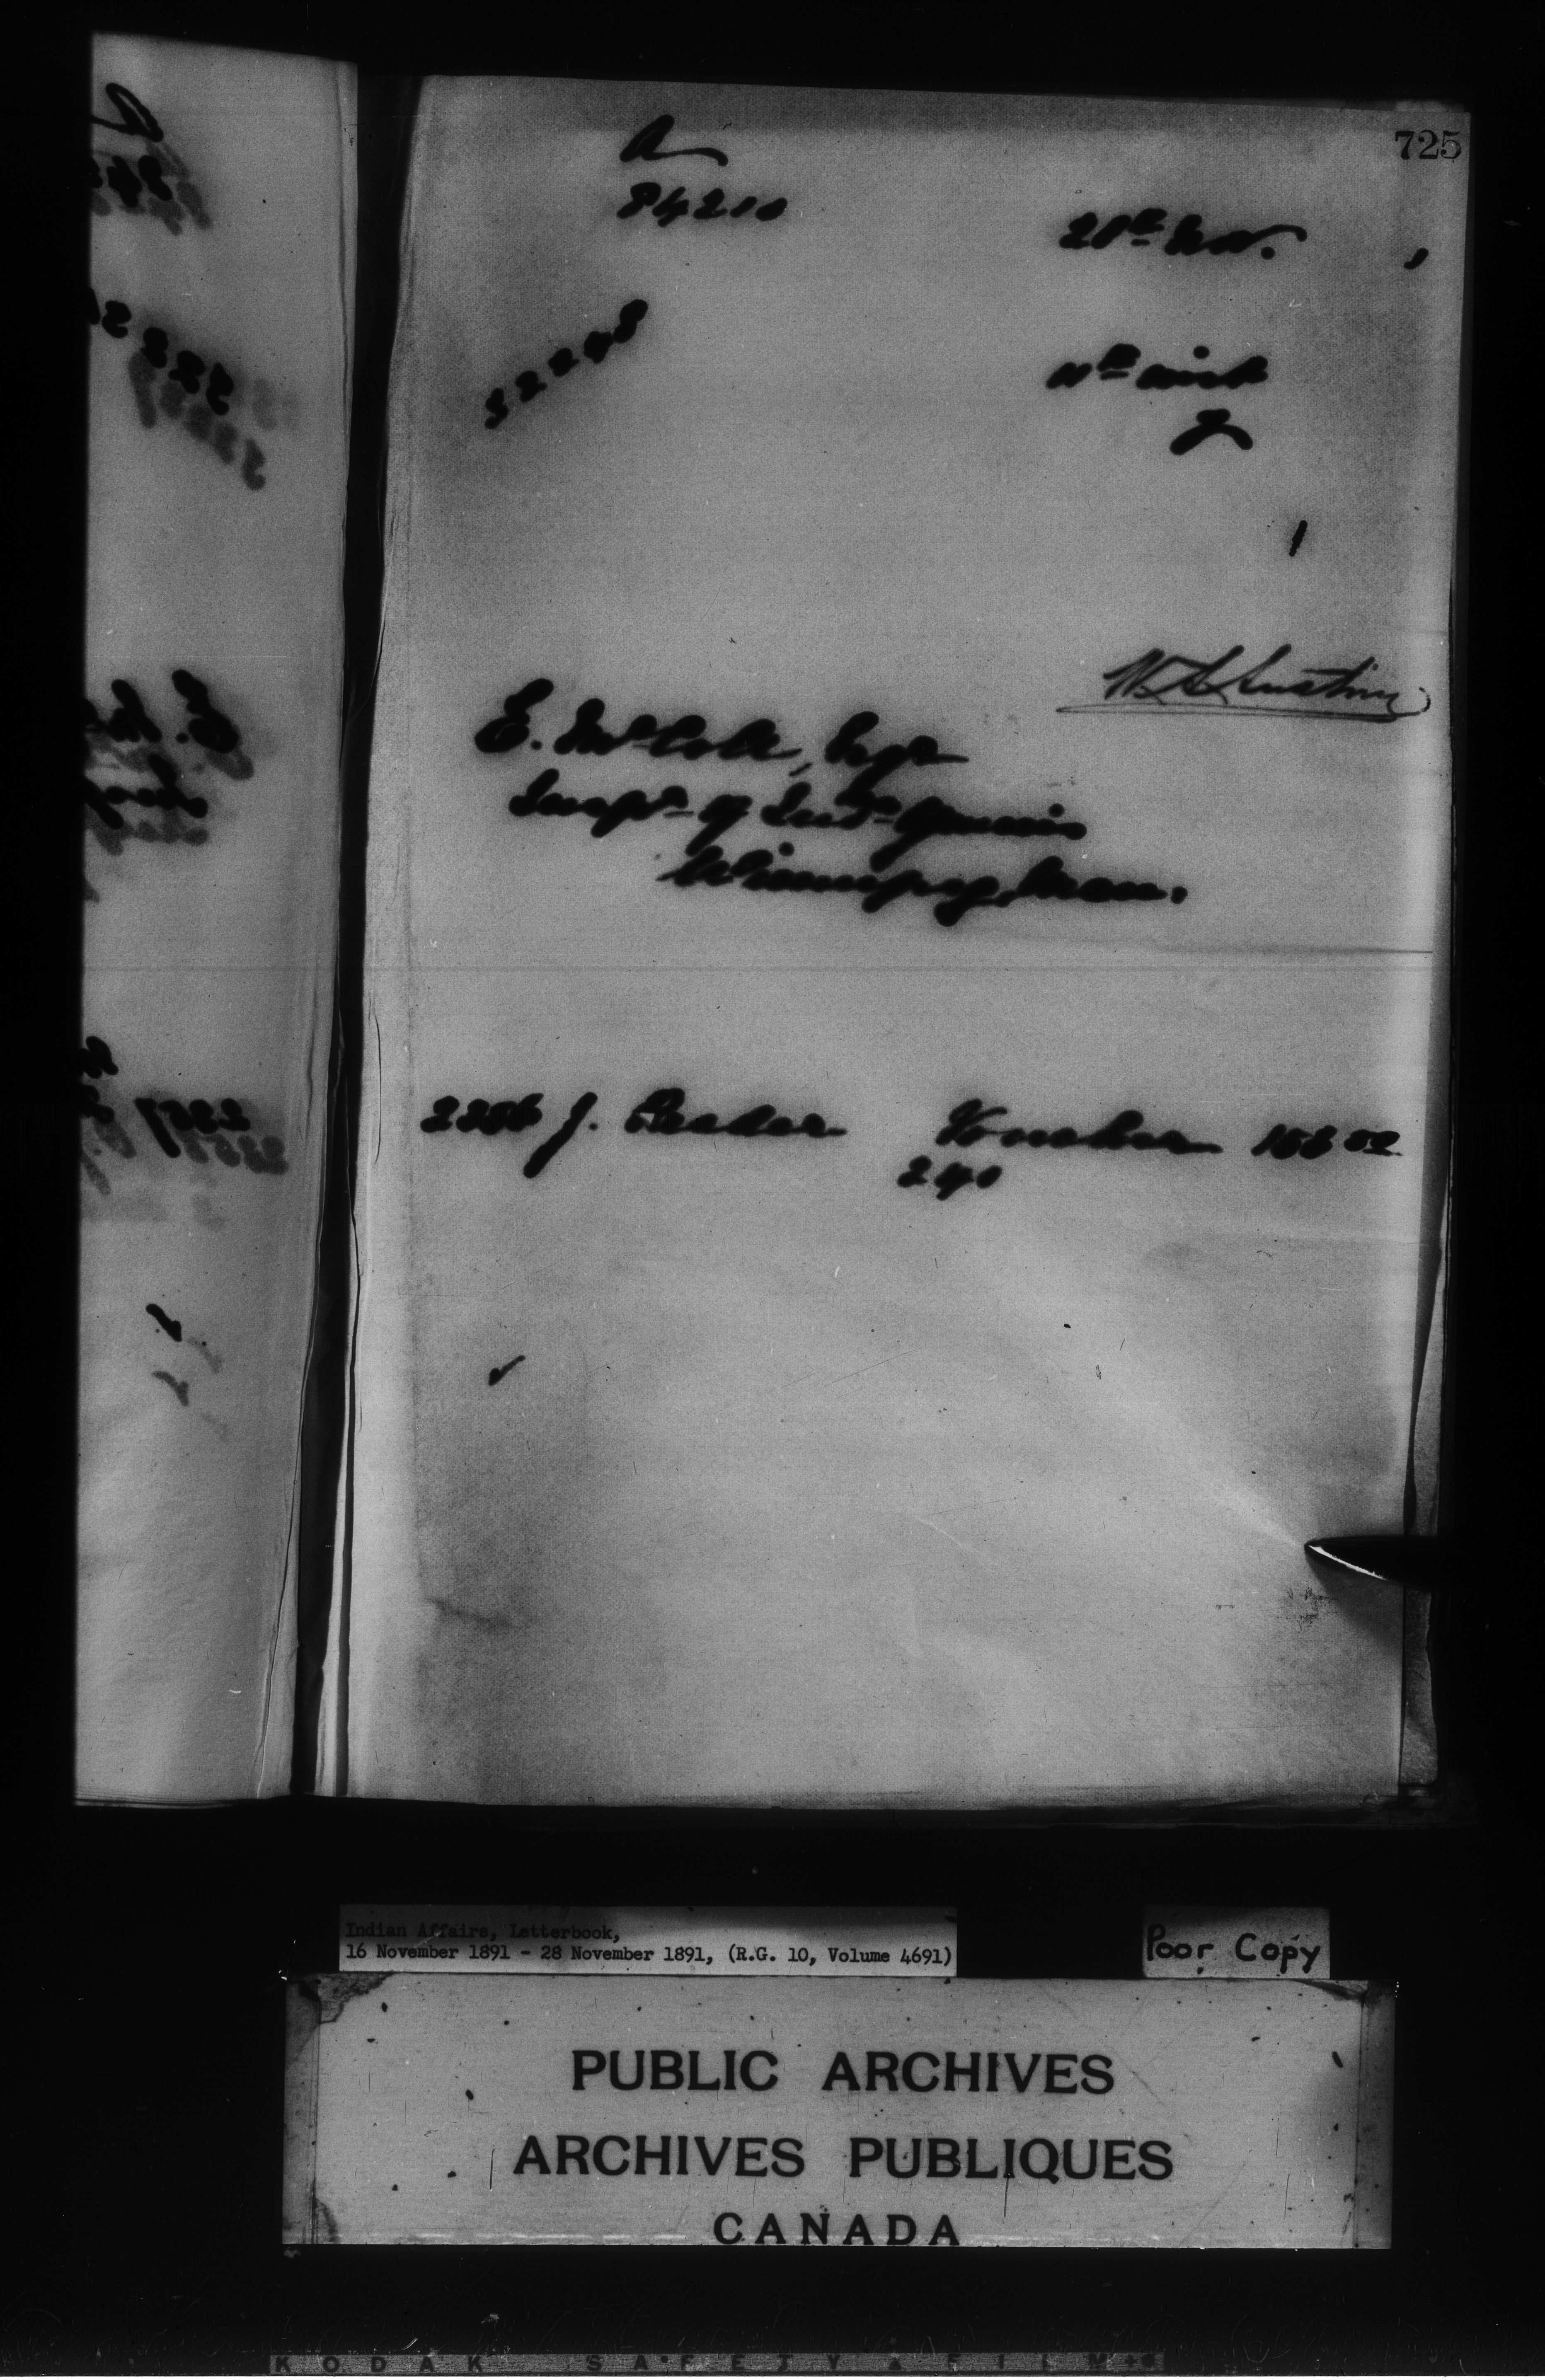 725
A
84210
28th Nov.
52248
11th inst
J
W.A. Austin
E. McColl, Esqr
Inspr. of Ind. Agencies
Winnipeg, Man.
2256 J. Reader Voucher
240
Indian Affairs, Letterbook,
16 November 1891 - 28 November 1891, (R.G. 10, Volume 4691)
Poor Copy
PUBLIC ARCHIVES
ARCHIVES PUBLIQUES
CANADA
KODAK SAFETY FILM